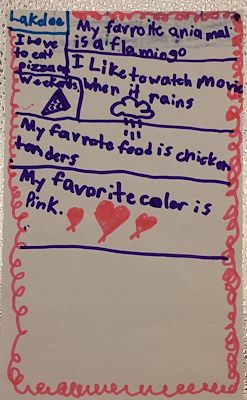 Lakelee
I Love
to eat
pizza on
Weekends
My favroite aniq mal
is a flamingo
I Like to watch movie
when it rains
My favrate food is chicken
tenders
My favorite color is
Pink.